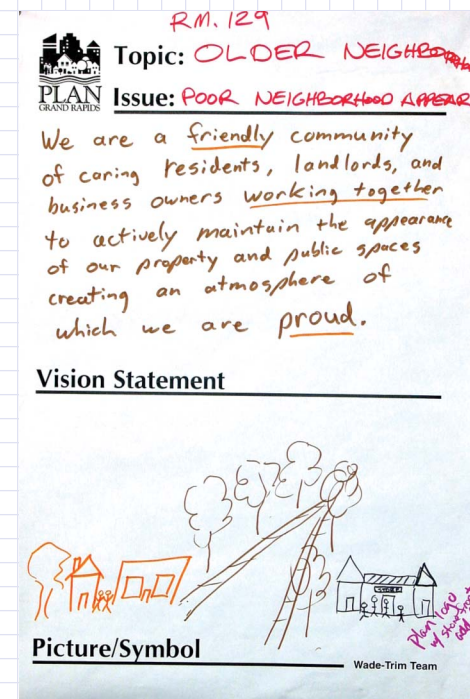 RM. 129
Topic: OLDER
PLAN
GRAND RAPIDS
Issue: POOR NEIGHBORHOOD APPEAR
We are a friendly community
of caring residents, landlords, and
business owners working together
to actively maintain the appearance
of our property and public spaces
creating an atmosphere of
which we are proud.
Vision Statement
Plan logo
w/ storefront
add
Picture/Symbol
Wade-Trim Team